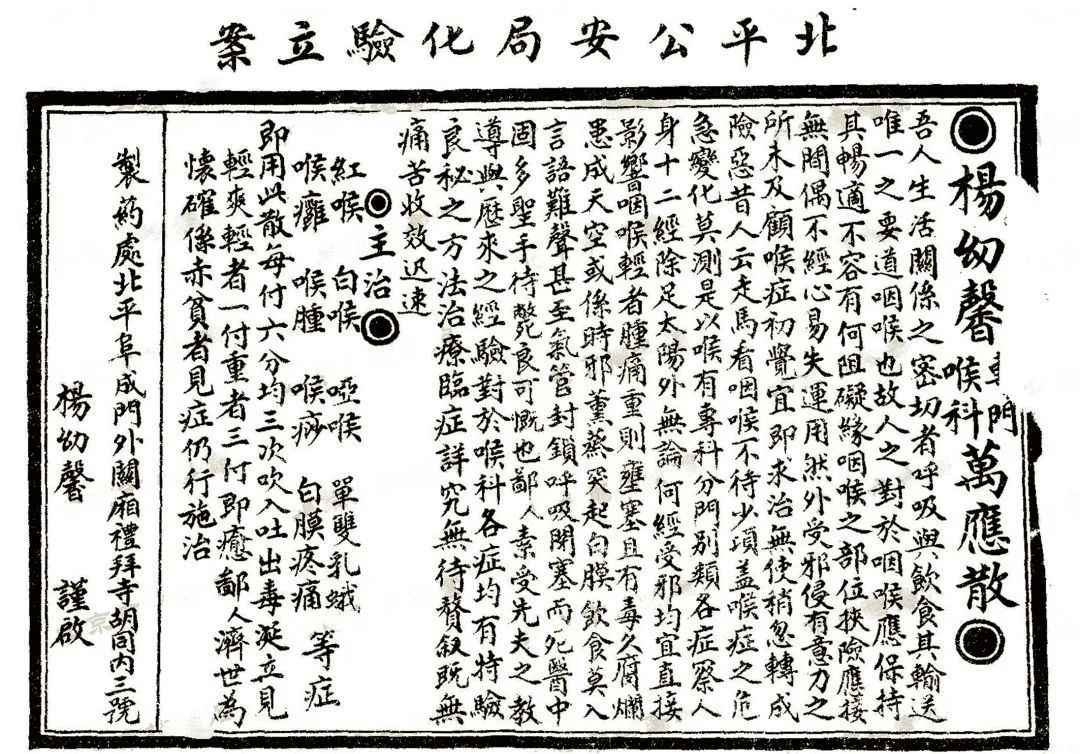 北平公安局化驗立案
楊幼馨
門
喉科
萬應散
吾人生活關係之密切者呼吸與飲食其輸送
唯一之要道咽喉也故人之對於咽喉應保持
其暢適不容有何阻礙緣咽喉之部位挾險應接
無間偶不經心易失運用然外受邪侵有意力之
所未及顧喉症初覺宜即求治無使稍忽轉成
險惡昔人云走馬看咽喉不待少項蓋喉症之危
急變化莫測是以喉有專科分門別類各症察人
身十二經除足太陽外無論何經受邪均宜直接
影響咽喉輕者腫痛重則壅塞且有毒久腐爛
患成天空或係時邪薰蒸突起白膜飲食莫入
言語難聲甚至氣管封鎖呼吸閉塞而死醫中
固多聖手待斃良可慨也鄙人素受先夫之教
導與歷來之經驗對於喉科各症均有特驗
良秘之方法治療臨症詳究無待贅敘既無
痛苦收效迅速
主治
紅喉 白喉 啞喉 單雙乳蛾
喉癰 喉腫 喉痧 白膜疼痛 等症
即用此散每付六分均三次吹入吐出毒凝立見
輕爽輕者一付重者三付即癒鄙人濟世為
懷確係赤貧者見症仍行施治
製葯處北平阜成門外關廂禮拜寺胡同內三號
楊幼馨 謹啟